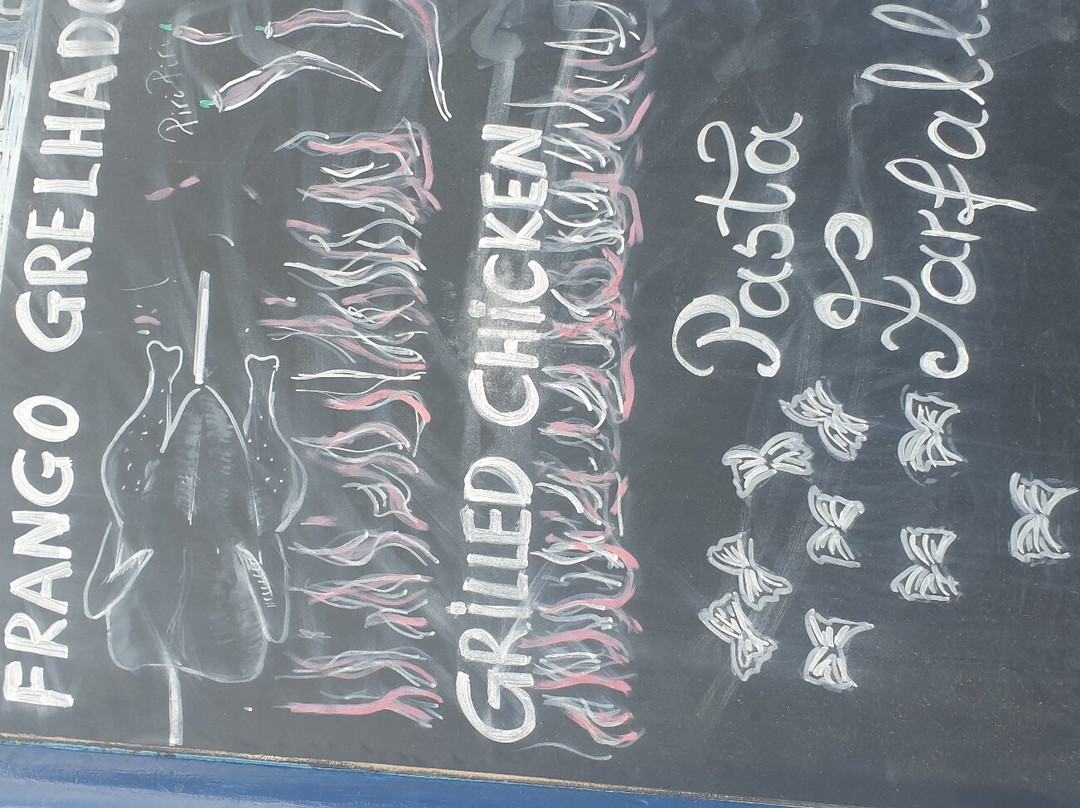 FRANGO GRELHADO
Piri Piri
GRiLLED CHiCKEN
Pasta
Farfall